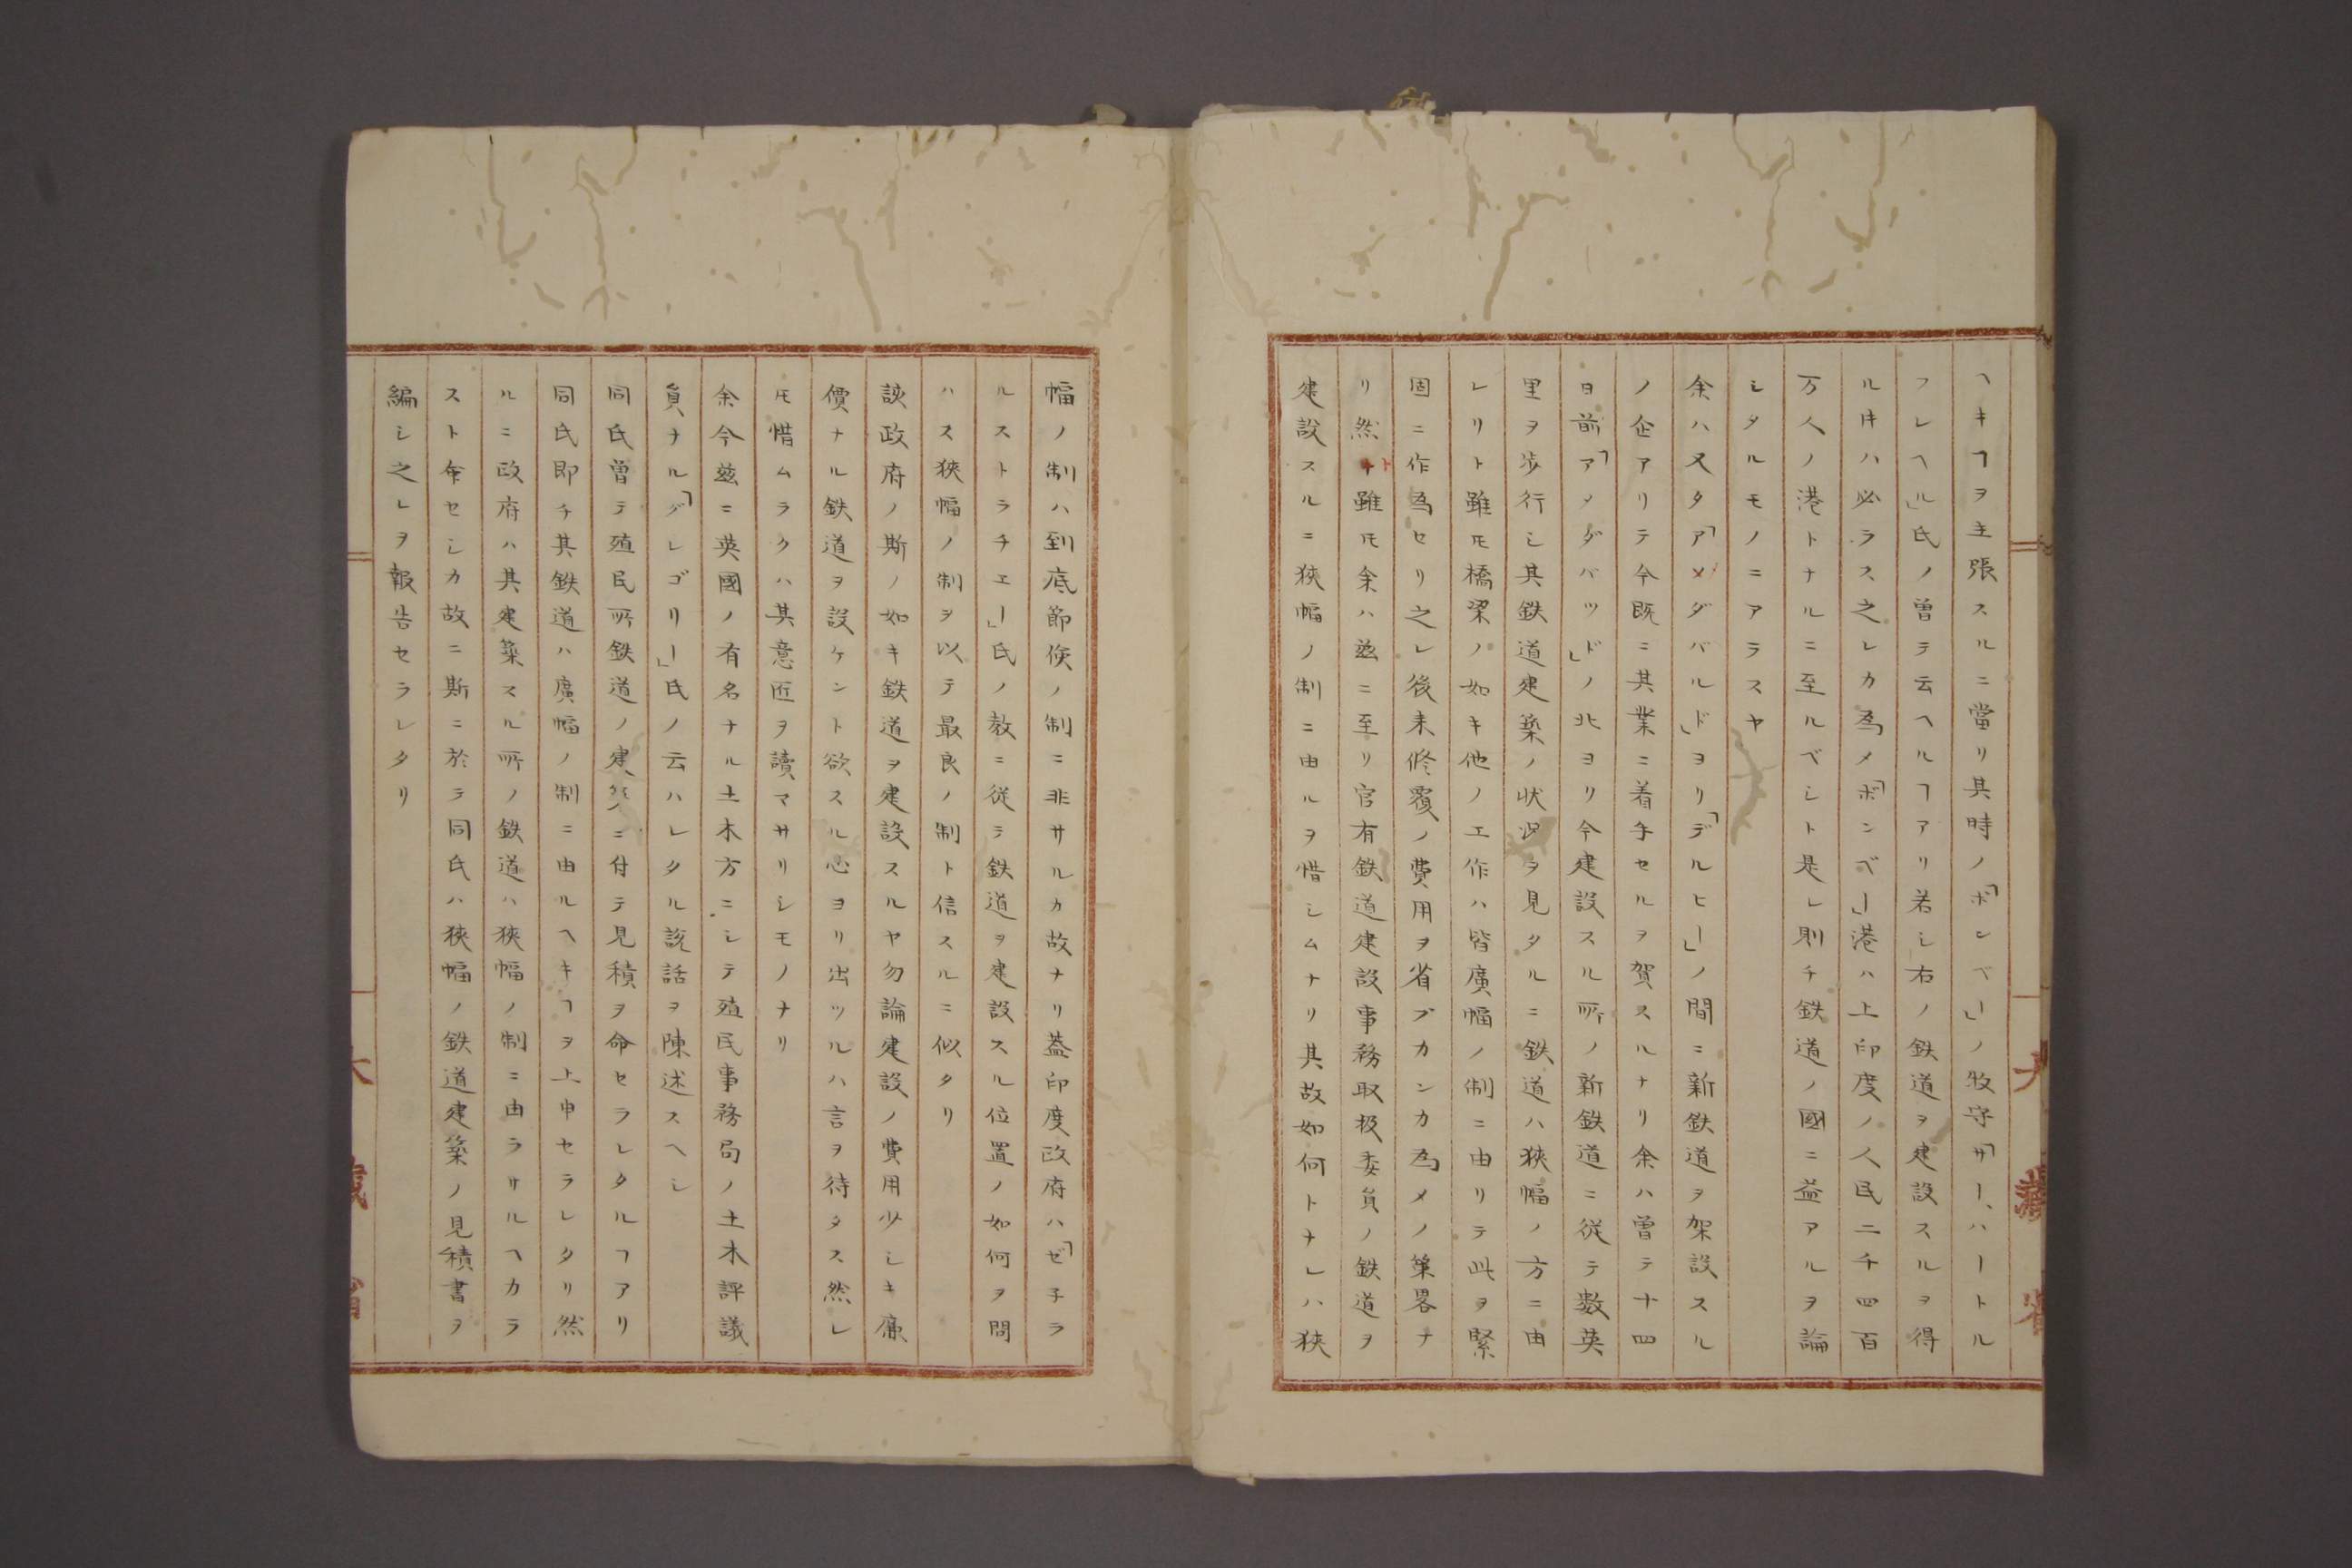 ヘキヿヲ主張スルニ當リ其時ノ「ボンベー」ノ牧守「サー、ハートル
フレヘル」氏ノ曽テ云ヘルヿアリ若シ右ノ鉄道ヲ建設スルヲ得
ル𪜈ハ必ラス之レカ為メ「ボンベー」港ハ上印度ノ人民二千四百
万人ノ港トナルニ至ルベシト是レ則チ鉄道ノ國ニ益アルヲ論
シタルモノニアラスヤ
余ハ又タ「アメダバルド」ヨリ「デルヒー」ノ間ニ新鉄道ヲ架設スル
ノ企アリテ今既ニ其業ニ着手セルヲ賀スルナリ余ハ曽テ十四
日前「アメダバッド」ノ北ヨリ今建設スル所ノ新鉄道ニ従テ数英
里ヲ歩行シ其鉄道建築ノ状況ヲ見タルニ鉄道ハ狭幅ノ方ニ由
レリト雖𪜈橋梁ノ如キ他ノ工作ハ皆廣幅ノ制ニ由リテ此ヲ緊
固ニ作為セリ之レ後来修覆ノ費用ヲ省ブカンカ為メノ策畧ナ
リ然ト雖𪜈余ハ茲ニ至リ官有鉄道建設事務取扱委員ノ鉄道ヲ
建設スルニ狭幅ノ制ニ由ルヲ惜シムナリ其故如何トナレハ狭
幅ノ制ハ到底節倹ノ制ニ非サルカ故ナリ蓋印度政府ハ「ゼ子ラ
ルストラチエー」氏ノ教ニ従テ鉄道ヲ建設スル位置ノ如何ヲ問
ハス狭幅ノ制ヲ以テ最良ノ制ト信スルニ似タリ
該政府ノ斯ノ如キ鉄道ヲ建設スルヤ勿論建設ノ費用少シキ廉
價ナル鉄道ヲ設ケント欲スル心ヨリ出ツルハ言ヲ待タス然レ
𪜈惜ムラクハ其意匠ヲ讀マサリシモノナリ
余今茲ニ英國ノ有名ナル土木方ニシテ殖民事務局ノ土木評議
員ナル「グレゴリー」氏ノ云ハレタル説話ヲ陳述スヘシ
同氏曽テ殖民所鉄道ノ建築ニ付テ見積ヲ命セラレタルヿアリ
同氏即チ其鉄道ハ廣幅ノ制ニ由ルヘキヿヲ上申セラレタリ然
ルニ政府ハ其建築スル所ノ鉄道ハ狭幅ノ制ニ由ラサルヘカラ
スト命セシカ故ニ斯ニ於テ同氏ハ狭幅ノ鉄道建築ノ見積書ヲ
編シ之レヲ報告セラレタリ
大藏省